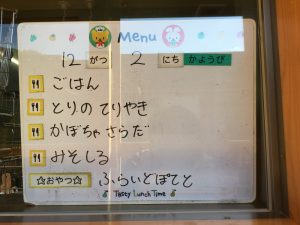 Menu
12 がつ 2 にち かようび
ごはん
とりの てりやき
かぼちゃ さらだ
みそしる
☆おやつ☆ ふらいどぽてと
Tasty Lunch Time